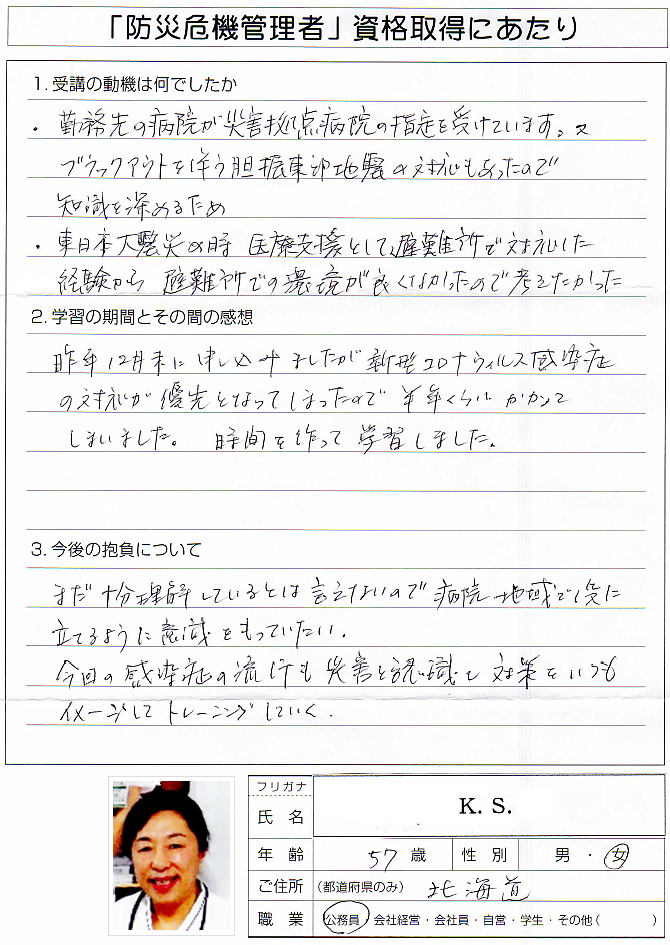 「防災危機管理者」資格取得にあたり
1. 受講の動機は何でしたか
・勤務先の病院が災害拠点病院の指定を受けています。又
ブラックアウトを伴う胆振東部地震の対応もあったので
知識を深めるため
・東日本大震災の時 医療支援として避難所で対応した
経験から 避難所での環境が良くなかったので考えたかった
2. 学習の期間とその間の感想
昨年12月末に申し込みましたが新型コロナウィルス感染症
の対応が優先となってしまったので半年くらいかかって
しまいました。 時間を作って学習しました。
3. 今後の抱負について
まだ十分理解しているとは言えないので病院、地域で役に
立てるように意識をもっていたい。
今回の感染症の流行も災害と認識し対策をいつも
イメージしてトレーニングしていく.
フリガナ
氏 名 K. S.
年 齢 57歳 性 別 男・女
ご住所 (都道府県のみ) 北海道
職 業 公務員・会社経営・会社員・自営・学生・その他( )